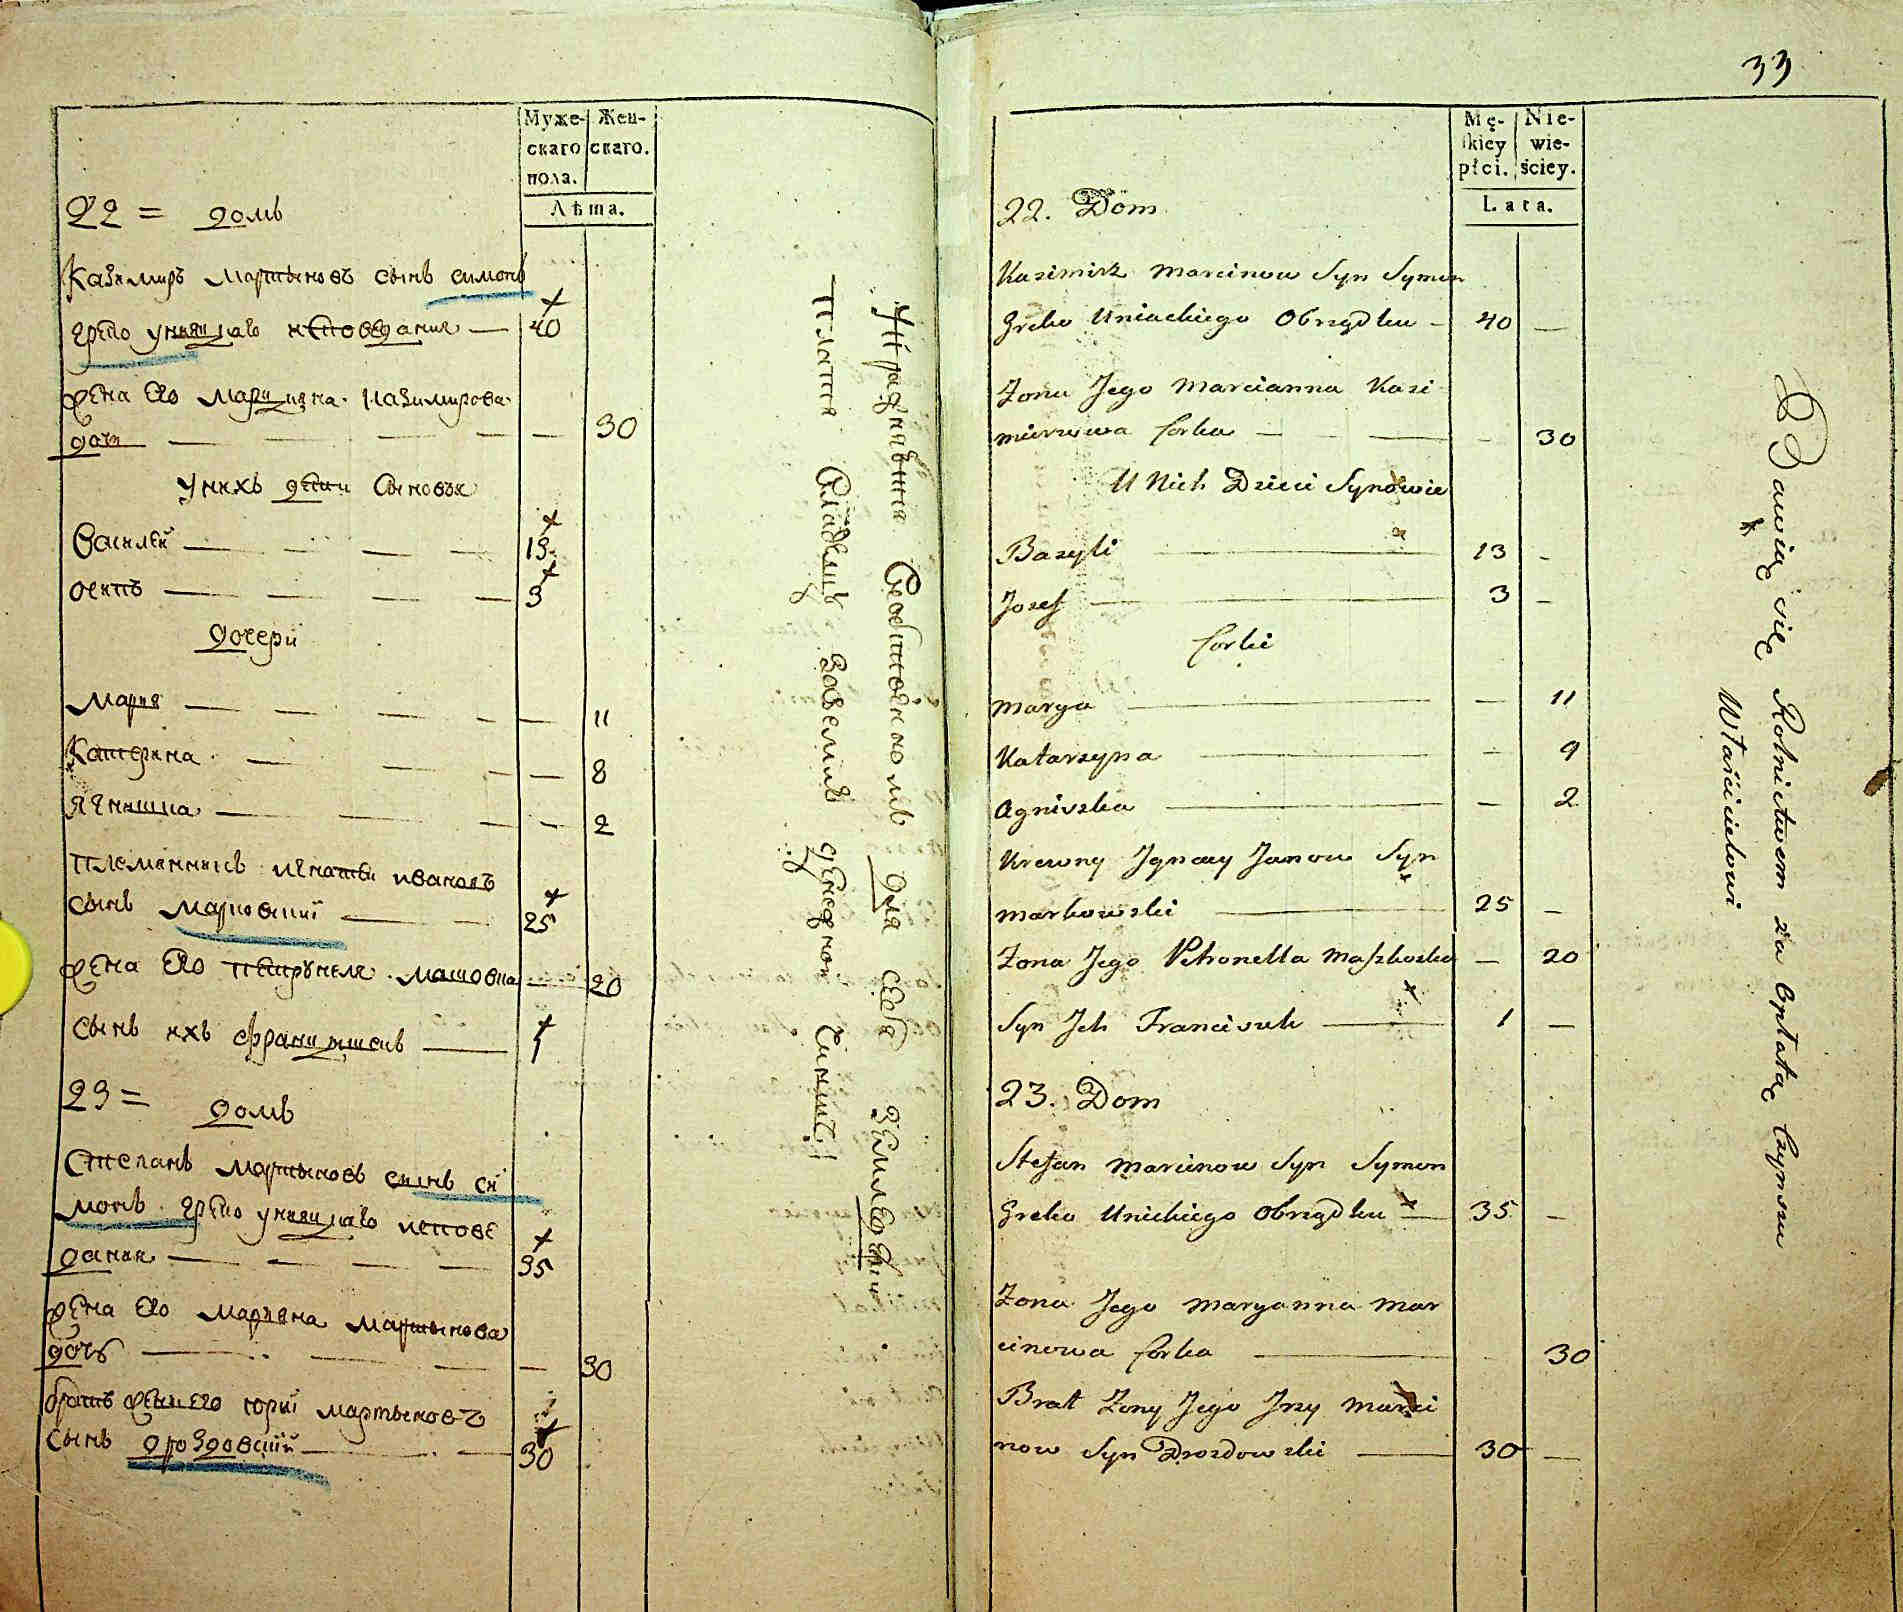 Муже-
скаго
пола.
Жен-
скаго.
Лѣта.
22 = домъ
Казимиръ мартыновъ сынъ симонъ
греко униацкаго исповедания — 40
жена Его марцияна казимирова
дочь — 30
у нихъ дети Сыновья
Василей — 13
осипъ — 3
дочери
мария — 11
Катерина — 8
ягнишка — 2
племянникъ игнатъи ивановъ
сынъ марковский — 25
жена Его петрунеля машовка — 20
сынъ ихъ францишекъ — 1
23 = домъ
Степанъ мартыновъ сынъ си
монъ греко унияцкаго испове
дания — 35
жена Его марьяна мартынова
дочь — 30
братъ жены Его юрий мартыновъ
сынъ дроздовский — 30
Упражняются для себя земледелием
платя владельцу за землю денежной чиншъ
33
Mę-
skiey
płci.
Nie-
wie-
ściey.
Lata.
22. Dom
Kazimirz Marcinow Syn Symon
Greko Uniackiego Obrządku — 40 —
Zona Jego Marcianna Kazi
mierzowa Corka — 30
U Nich Dzieci Synowie
Bazyli — 13 -
Jozef — 3 -
Corki
Marya — 11
Katarzyna — 9
Agniszka — 2
Krewny Jgnacy Janow Syn
Markowski — 25 —
Zona Jego Petronella Maszkoska — 20
Syn Jch Franciszek — 1 —
23. Dom
Stefan Marcinow Syn Symon
Greko Unickiego Obrządku — 35 -
Zona Jego Maryanna Mar
cinowa Corka — 30
Brat Zony Jego Jrzy Marci
now Syn Drozdowski — 30 —
Bawią się Rolnictwem za Opłatą Czynszu
Właścicielowi